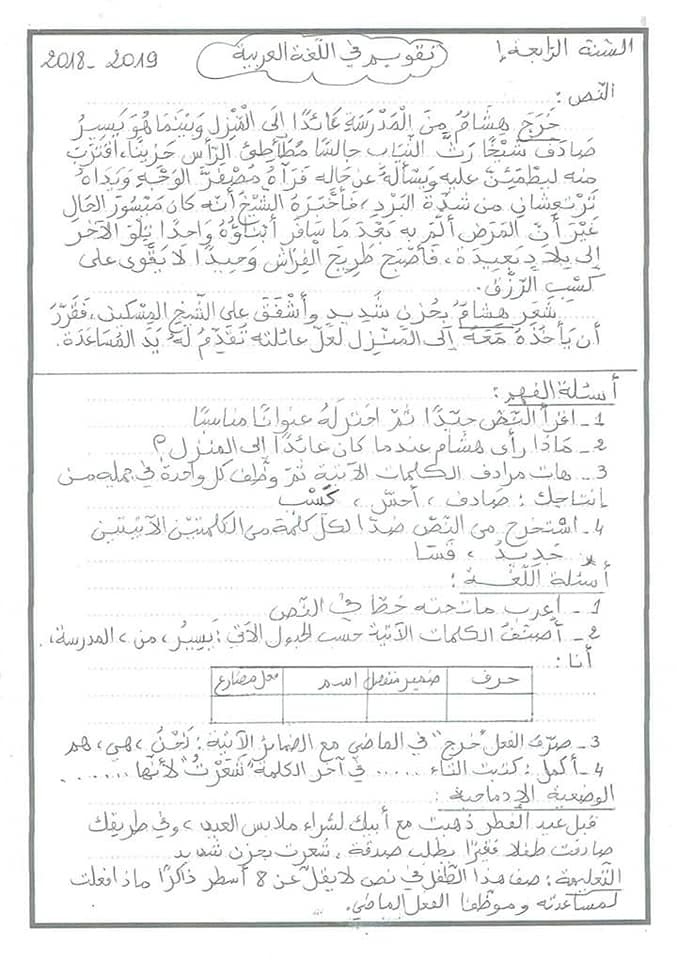 السّنة الرّابعة إ
تقويم في اللّغة العربية
2018 - 2019
النّص :
خَرَجَ هِشَامُ مِنَ الْمَدْرَسَةِ عَائِدًا إلَى الْمَنْزِلِ وَبَيْنَمَا هُوَ يَسِيرُ
صَادَفَ شَيْخًا رَثَّ الثِّيَابِ جالسًا مُطَأْطِئَ الرَّأسِ حَزِينًا، اقْتَرَبَ
منه ليَطْمَئِنَّ عليه وَيَسْأَلَهُ عن حاله فَرَآهُ مُصْفَرَّ الوَجْهِ وَيَدَاهُ
تَرْتَعِشَانِ من شدّة البَرْدِ، فأَخْبَرَهُ الشَّيْخُ أنّه كان مَيْسُورَ الحَالِ
غَيْرَ أَنَّ المَرَضَ أَلَمَّ به بَعْدَ مَا سَافَرَ أَبْنَاؤُهُ وَاحدًا تِلْوَ الآخَرِ
إلى بِلَادٍ بَعِيدَةٍ، فَأَصْبَحَ طَرِيحَ الْفِرَاشِ وَحِيدًا لَا يَقْوَى على
كَسْبِ الرِّزْقِ.
شَعَرَ هِشَامُ بحُزْنٍ شَدِيدٍ وأَشْفَقَ على الشّيْخِ المِسْكِينِ، فَقَرَّرَ
أن يَأْخُذَهُ مَعَهُ إلى المَنْزِلِ لَعَلَّ عائلته تُقَدِّمُ لَهُ يَدَ المُسَاعَدَة.
أسئلة الفهم :
1 - اقرأ النَّصّ جيّدًا ثمّ اختر له عنوانًا مناسبًا
2 - مَاذَا رأى هشام عندما كان عائدًا إلى المنزل؟
3 - هات مرادف الكلمات الآتية ثمّ وظّف كلّ واحدة في جملة من
إنتاجك : صَادف ، أحسّ ، كَسْب
4 - اسْتخرج من النّصّ ضدّا لكلّ كلمة من الكلمتين الآتيتين
جَدِيدُ ، قَسَا
أسئلة اللّغـــة :
1 - أعرب ماتحته خطّ في النّص
2 - أصنّف الكلمات الآتية حسب الجدول الآتي : يَسِيرُ ، من ، المدرسة ،
أنا :
حرف | ضمير منفصل | اسم | فعل مضارع
3 - صرّف الفعل "خرج" في الماضي مع الضمائر الآتية : نَحْنُ ، هي ، هم
4 - أكمل : كتبت التاء ...... في آخر الكلمة "شَعَرْتُ" لأنّها ........
الوضعية الإدماجية :
قبل عيد الفطر ذهبت مع أبيك لشراء ملابس العيد ، وفي طريقك
صادفت طفلا فقيرًا يطلب صدقة ، شعرت بحزن شديد
التّعليمة : صف هذا الطّفل في نص لا يقلّ عن 8 أسطر ذاكرًا ماذا فعلت
لمساعدته وموظّفا الفعل الماضي.